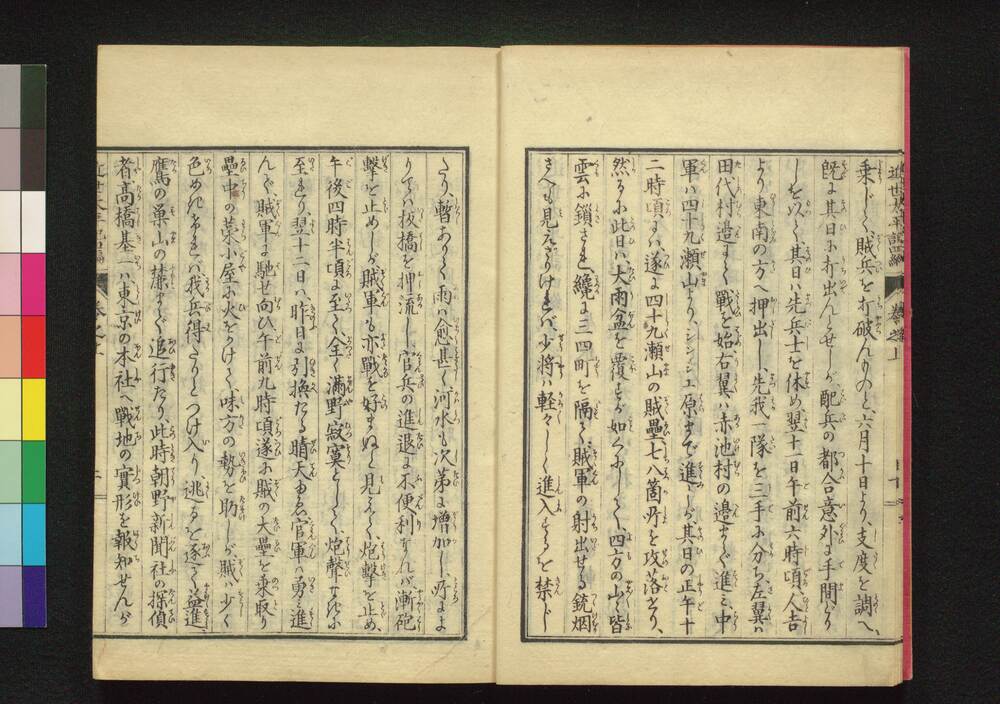 乗じく賊兵を打破んものと六月十日より支度を調へ、
既に其日に打出んとせしが配兵の都合意外に手間どり
しを以て其日ハ先兵士を休め翌十一日午前六時頃人吉
より東南の方へ押出し、先我一隊を三手に分ち左翼ハ
田代村邉にて戦を始右翼ハ赤池村の邉まで進ミ中
軍ハ四十九瀬山より、シンジユ原まで進しが其日の正午十
二時頃にハ遂に四十九瀬山の賊壘七八箇所を攻落せり、
然るに此日ハ大雨盆を覆すが如くにして、四方の山々皆
雲に鎖され、纔に三四町を隔て賊軍の射出せる銃烟
さへも見えざりけれバ、少将ハ軽々しく進入するを禁じ
たり、暫ありて雨ハ愈甚く河水も次第に増加し所によ
りてハ抜橋を押流し官兵の進退に不便利なれバ漸砲
撃を止めしが賊軍も亦戦を好まぬと見えて炮撃を止め、
午後四時半頃に至て全く満野寂寞として炮聲なきに
至れり、翌十二日ハ昨日に引換たる晴天ゆゑ官軍ハ勇ミ進
んで賊軍に馳せ向ひ午前九時頃遂に賊の大壘を乗取り
壘中の菜小屋に火をかけて、味方の勢を助しが賊ハ少く
色めれけれバ我兵得たりとつけ入り逃るを逐て益進ミ
鷹の巣山の麓まで追行たり此時朝野新聞社の探偵
者髙橋基一ハ東京の本社へ戦地の實形を報知せんが